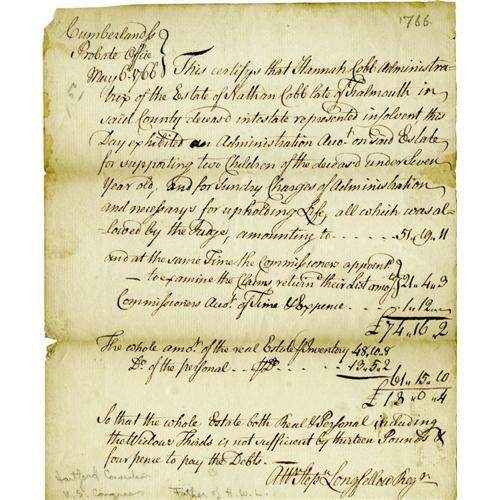 1766.
Cumberland ss
Probate Office
May 6. 1766 } This certifys that Hannah Cobb Administra-
-trix of the Estate of Nathan Cobb late of Falmouth in
said County deceasd intestate represented insolvent this
Day exhibited an Administration Accot. on said Estate
for supporting two Children of the deceasd under Seven
Year old, and for Sundry Charges of Administration
and necessarys for upholding Life, all which was al-
-lowed by the Judge, amounting to - - - - - 51.19.11
and at the same Time the Commissioners appointd.
to examine the Claims return'd their List amog. to } 21.4.3
Commissioners Accot. of Time & Expence - - 1.12.-
£74.16.2
The whole amot. of the real Estate & Inventory 48.10.8
Do. of the personal - - - Do. - - - 13.5.2
61.15.10
£13.0.4
So that the whole Estate both Real & Personal including
the Widows Thirds is not sufficient by thirteen Pounds &
four pence to pay the Debts.-
Attr. Stepn. Longfellow Regr.
Hartford Convention
U.S. Congress
Father of H.W.L.